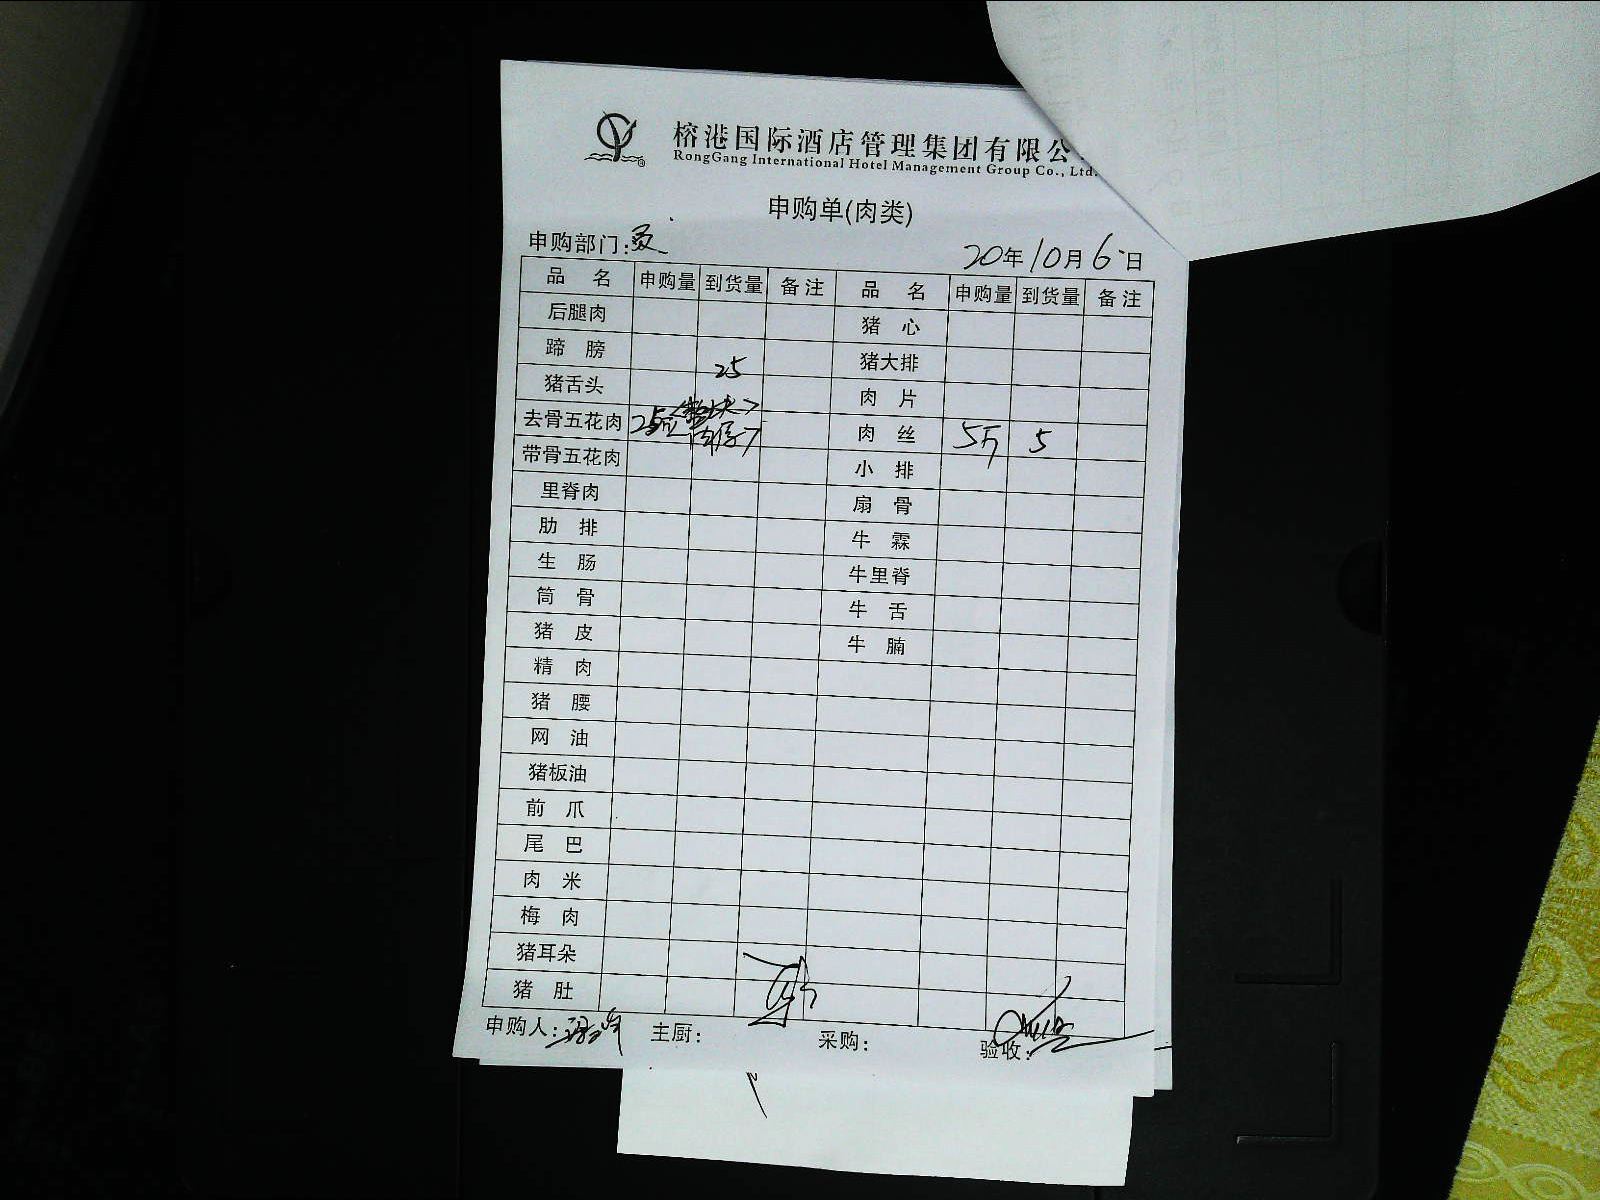 榕港国际酒店管理集团有限公
RongGang International Hotel Management Group Co., Ltd.
申购单(肉类)
申购部门:
20年10月6日
品 名 申购量 到货量 备注 品 名 申购量 到货量 备注
后腿肉 猪 心
蹄 膀 猪大排
25
猪舌头 肉 片
去骨五花肉 25 肉 丝 5斤 5
带骨五花肉 小 排
里脊肉 扇 骨
肋 排 牛 霖
生 肠 牛里脊
筒 骨 牛 舌
猪 皮 牛 腩
精 肉
猪 腰
网 油
猪板油
前 爪
尾 巴
肉 米
梅 肉
猪耳朵
猪 肚
申购人: 主厨: 采购: 验收: